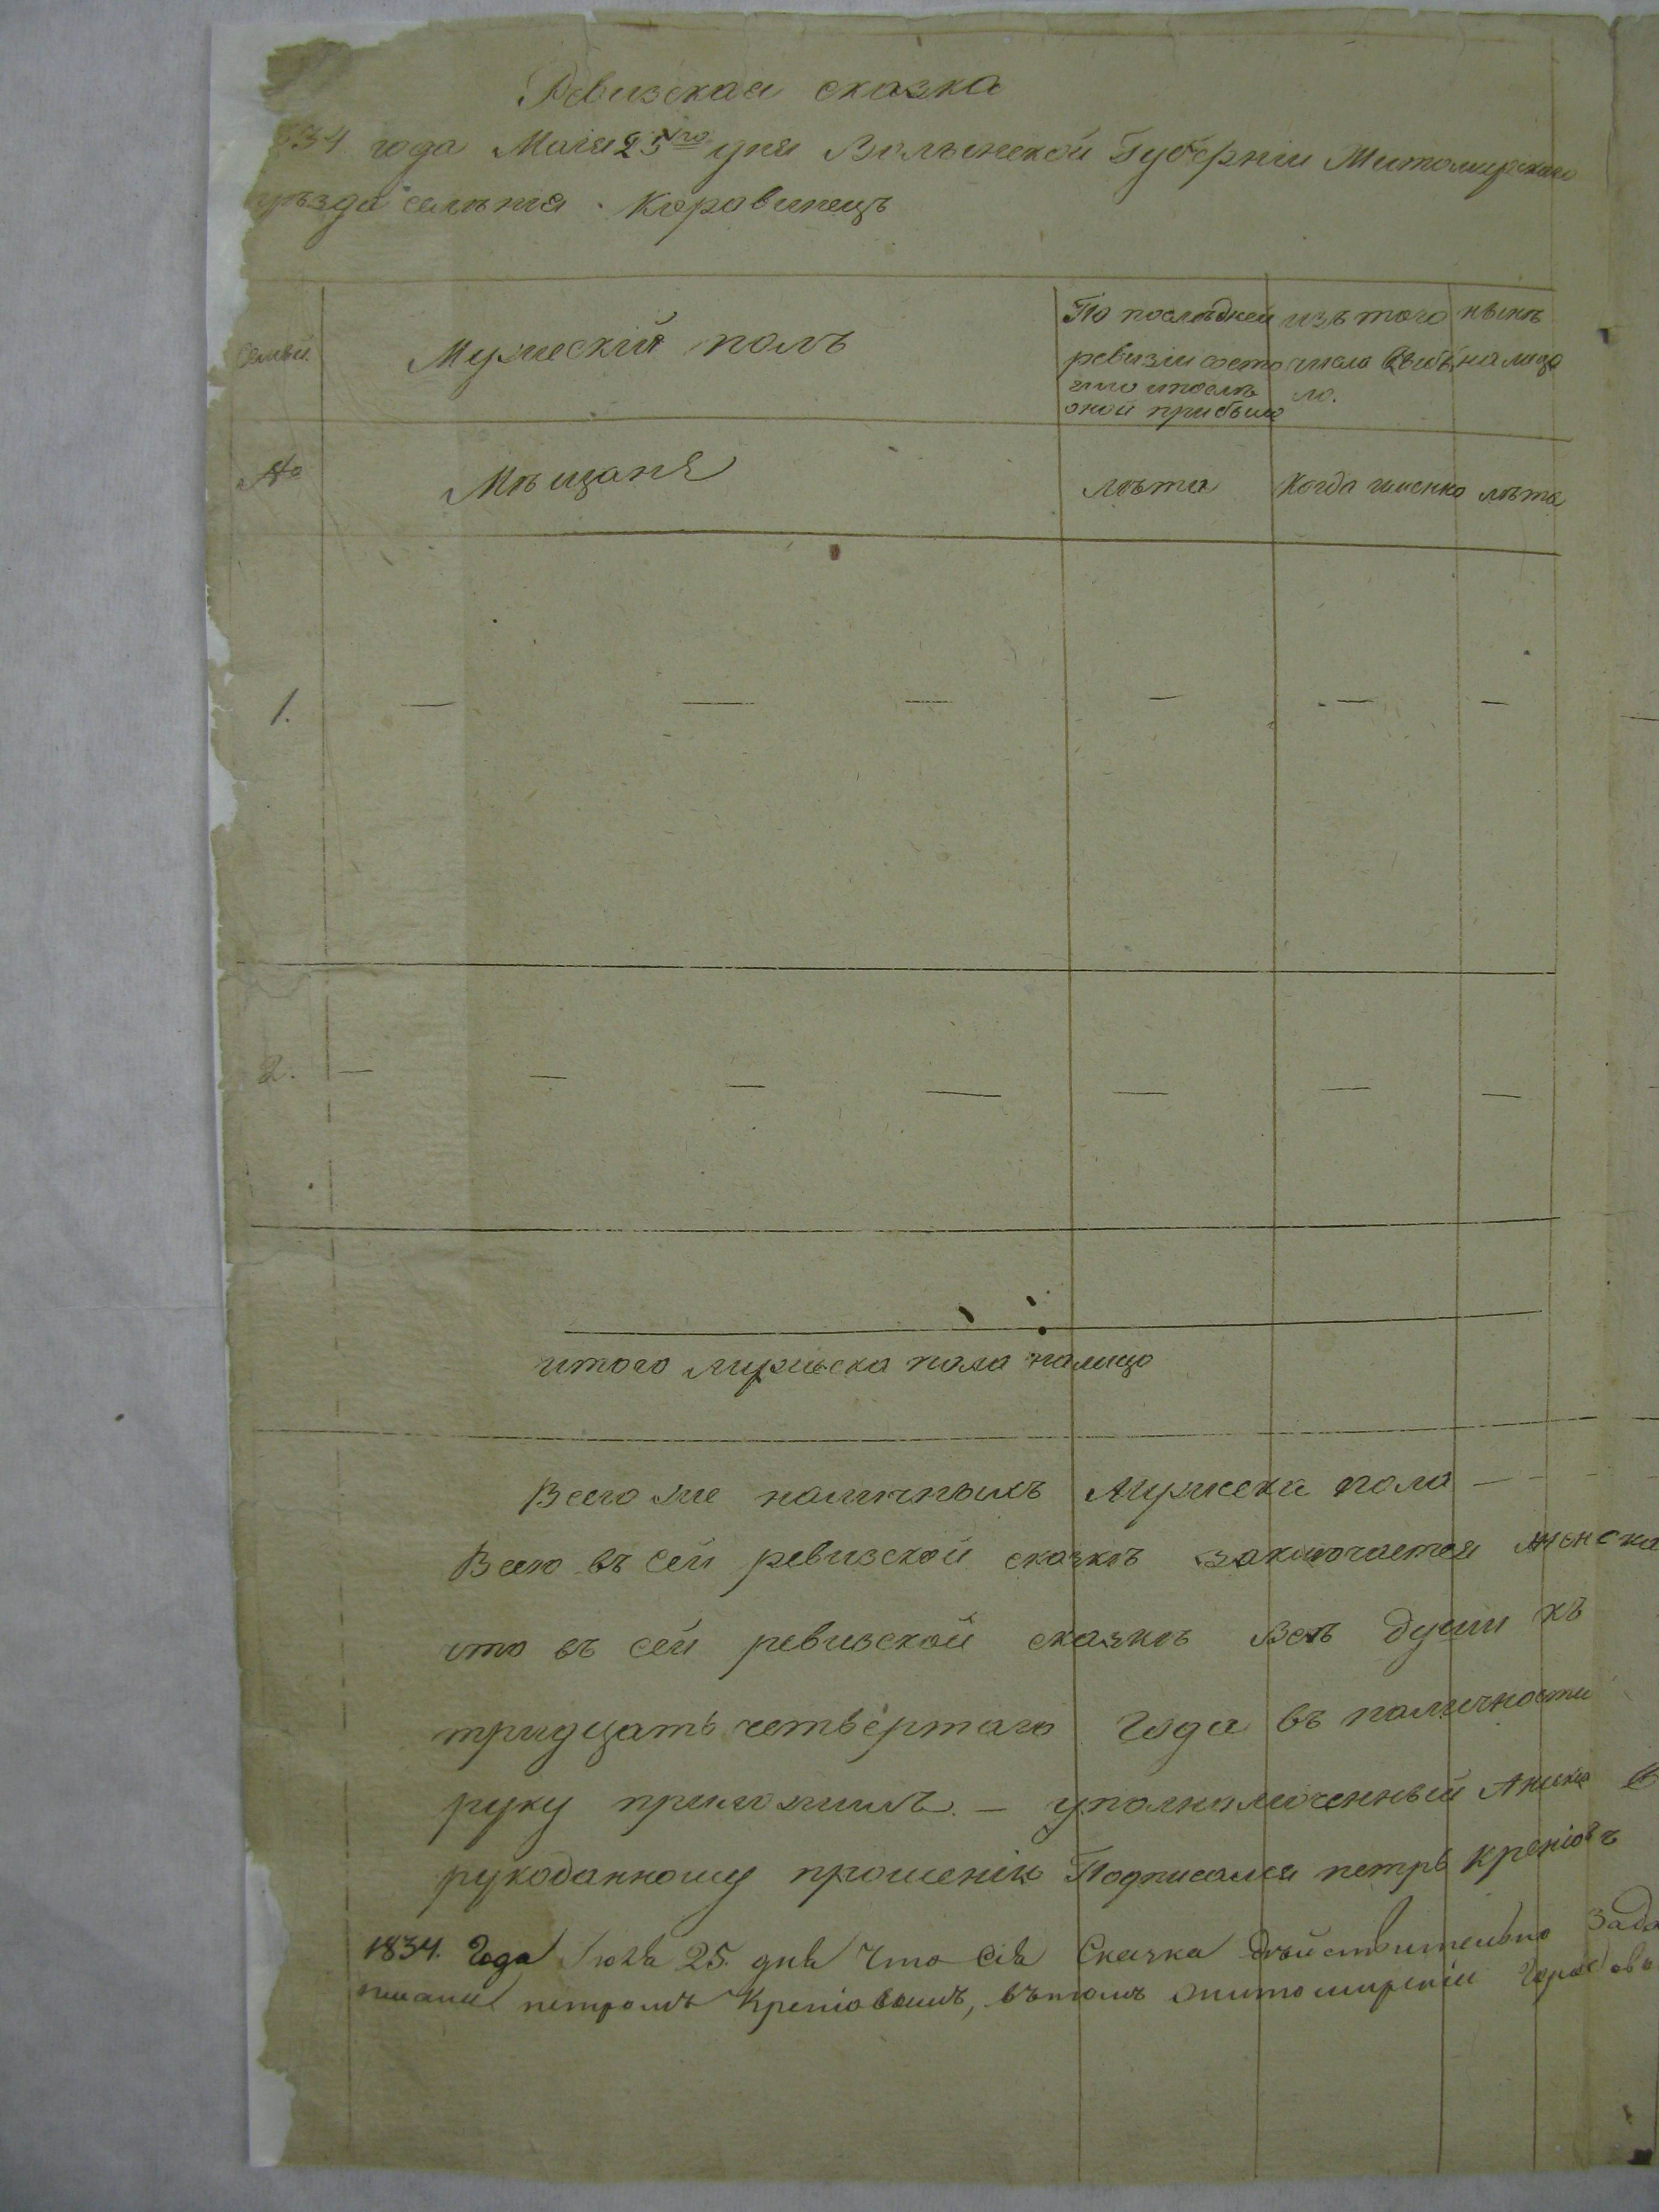 Ревизская сказка
834 года Маія 25го дня Волынской Губерніи Житомирскаго
уѣзда селѣнія Коровинецъ
Семьи
Мужеский полъ
По последней
ревизіи состо
яло и послѣ
оной прибыло
изъ того
числа выбы
ло.
нынѣ
на лицо
№
Мѣщанѣ
лѣта
Когда именно
лѣта
1.
2.
итого мужеска пола налицо
Всего же наличныхъ Мужеска пола
Всего въ сей ревизской сказкѣ заключается женска
что въ сей ревизской сказкѣ Всѣ души къ
тридцать четвертаго Года въ наличности
руку приложилъ. — уполномоченный
рукоданному прошенію Подписался петръ Креніовъ
1834. Года Іюля 25. дня Что сія Сказка дѣйствительно
петромъ Креніовымъ, въ томъ житомирскій